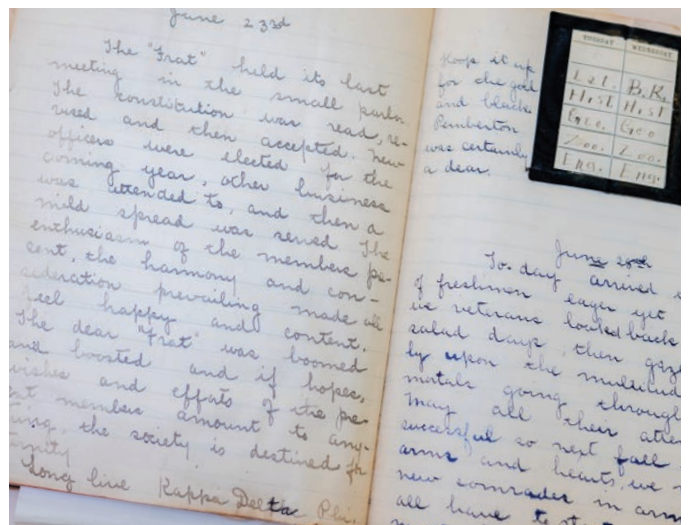 June 23rd
The "Frat" held its last
meeting in the small parlor.
The constitution was read, re-
vised and then accepted. New
officers were elected for the
coming year, other business
was attended to, and then a
mild spread was served. The
enthusiasm of the members pe-
cent, the harmony and con-
sideration prevailing made all
feel happy and content.
The dear "Frat" was boomed
and boosted and if hopes,
wishes and efforts of the pe-
ent members amount to any-
thing, the society is destined for
Long live Kappa Delta Phi.
Keep it up
for the gold
and black
Pemberton
was certainly
a dear.
TUESDAY WEDNESDAY
Lat. B.R.
Hist Hist
Geo. Geo
Zoo. Zoo.
Eng. Eng.
June 28th
To-day arrived
of freshmen eager yet
we veterans looked back
salad days, then gaz
ly upon the multitud
mortals going through
May all their atte
successful so next fall
arms and hearts, we
new comrades in arm
all have to